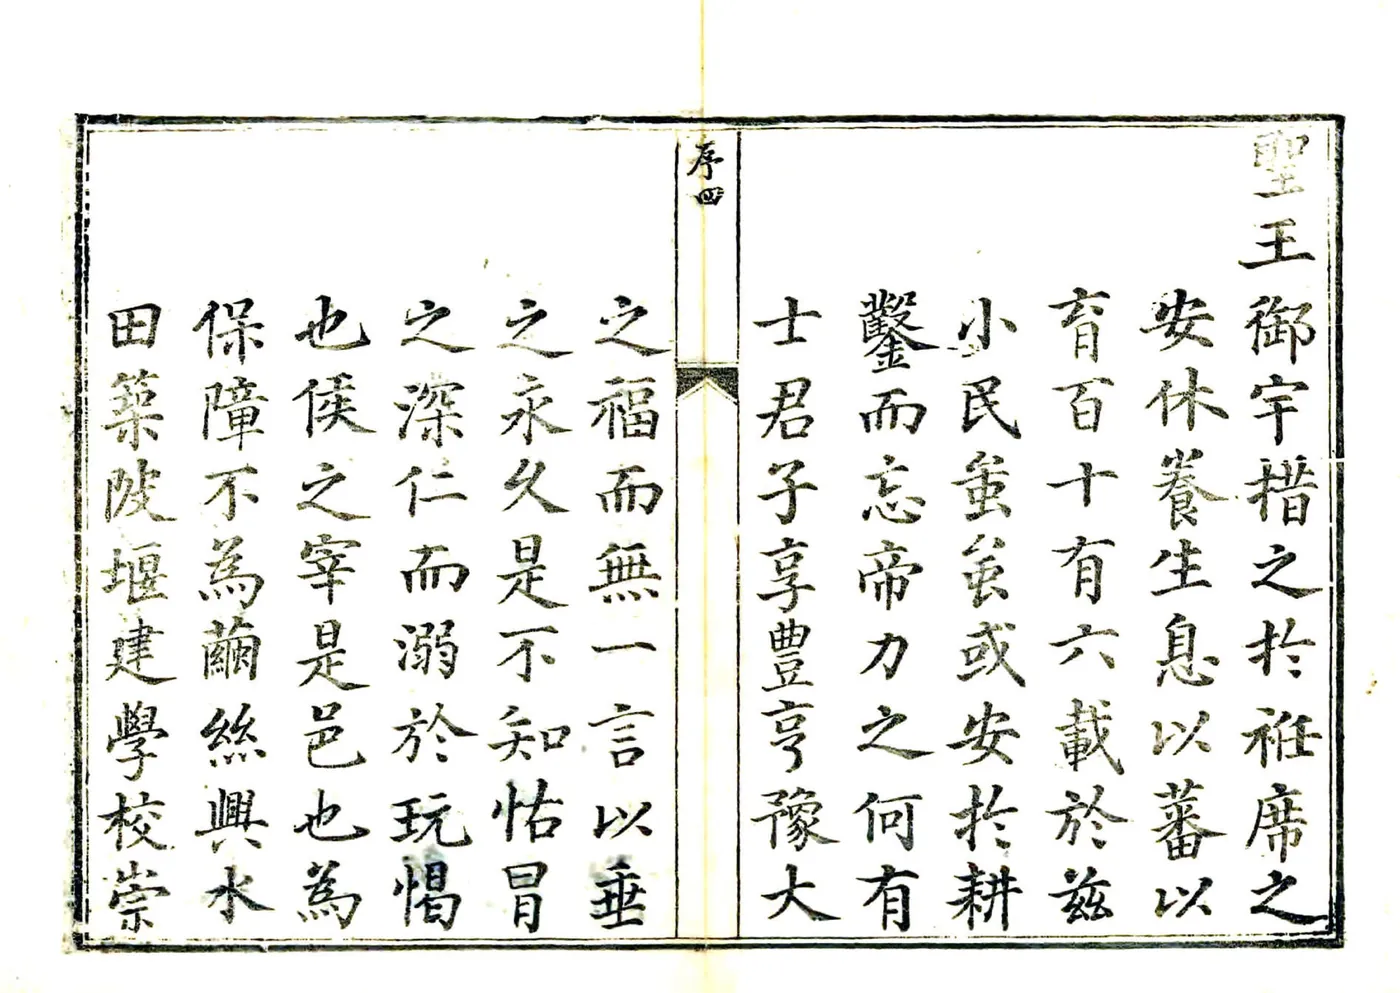 聖王御宇措之於袵席之
安休養生息以蕃以
育百十有六載於茲
小民蚩蚩或安於耕
鑿而忘帝力之何有
士君子享豊亨豫大
序四
之福而無一言以垂
之永久是不知怙冒
之深仁而溺於玩愒
也侯之宰是邑也為
保障不為繭絲興水
田築陂堰建學校崇